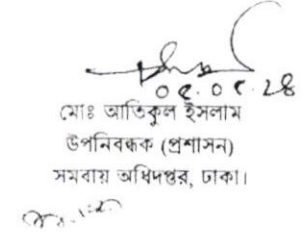 ০৫.০৫.২৪
মোঃ আতিকুল ইসলাম
উপনিবন্ধক (প্রশাসন)
সমবায় অধিদপ্তর, ঢাকা।